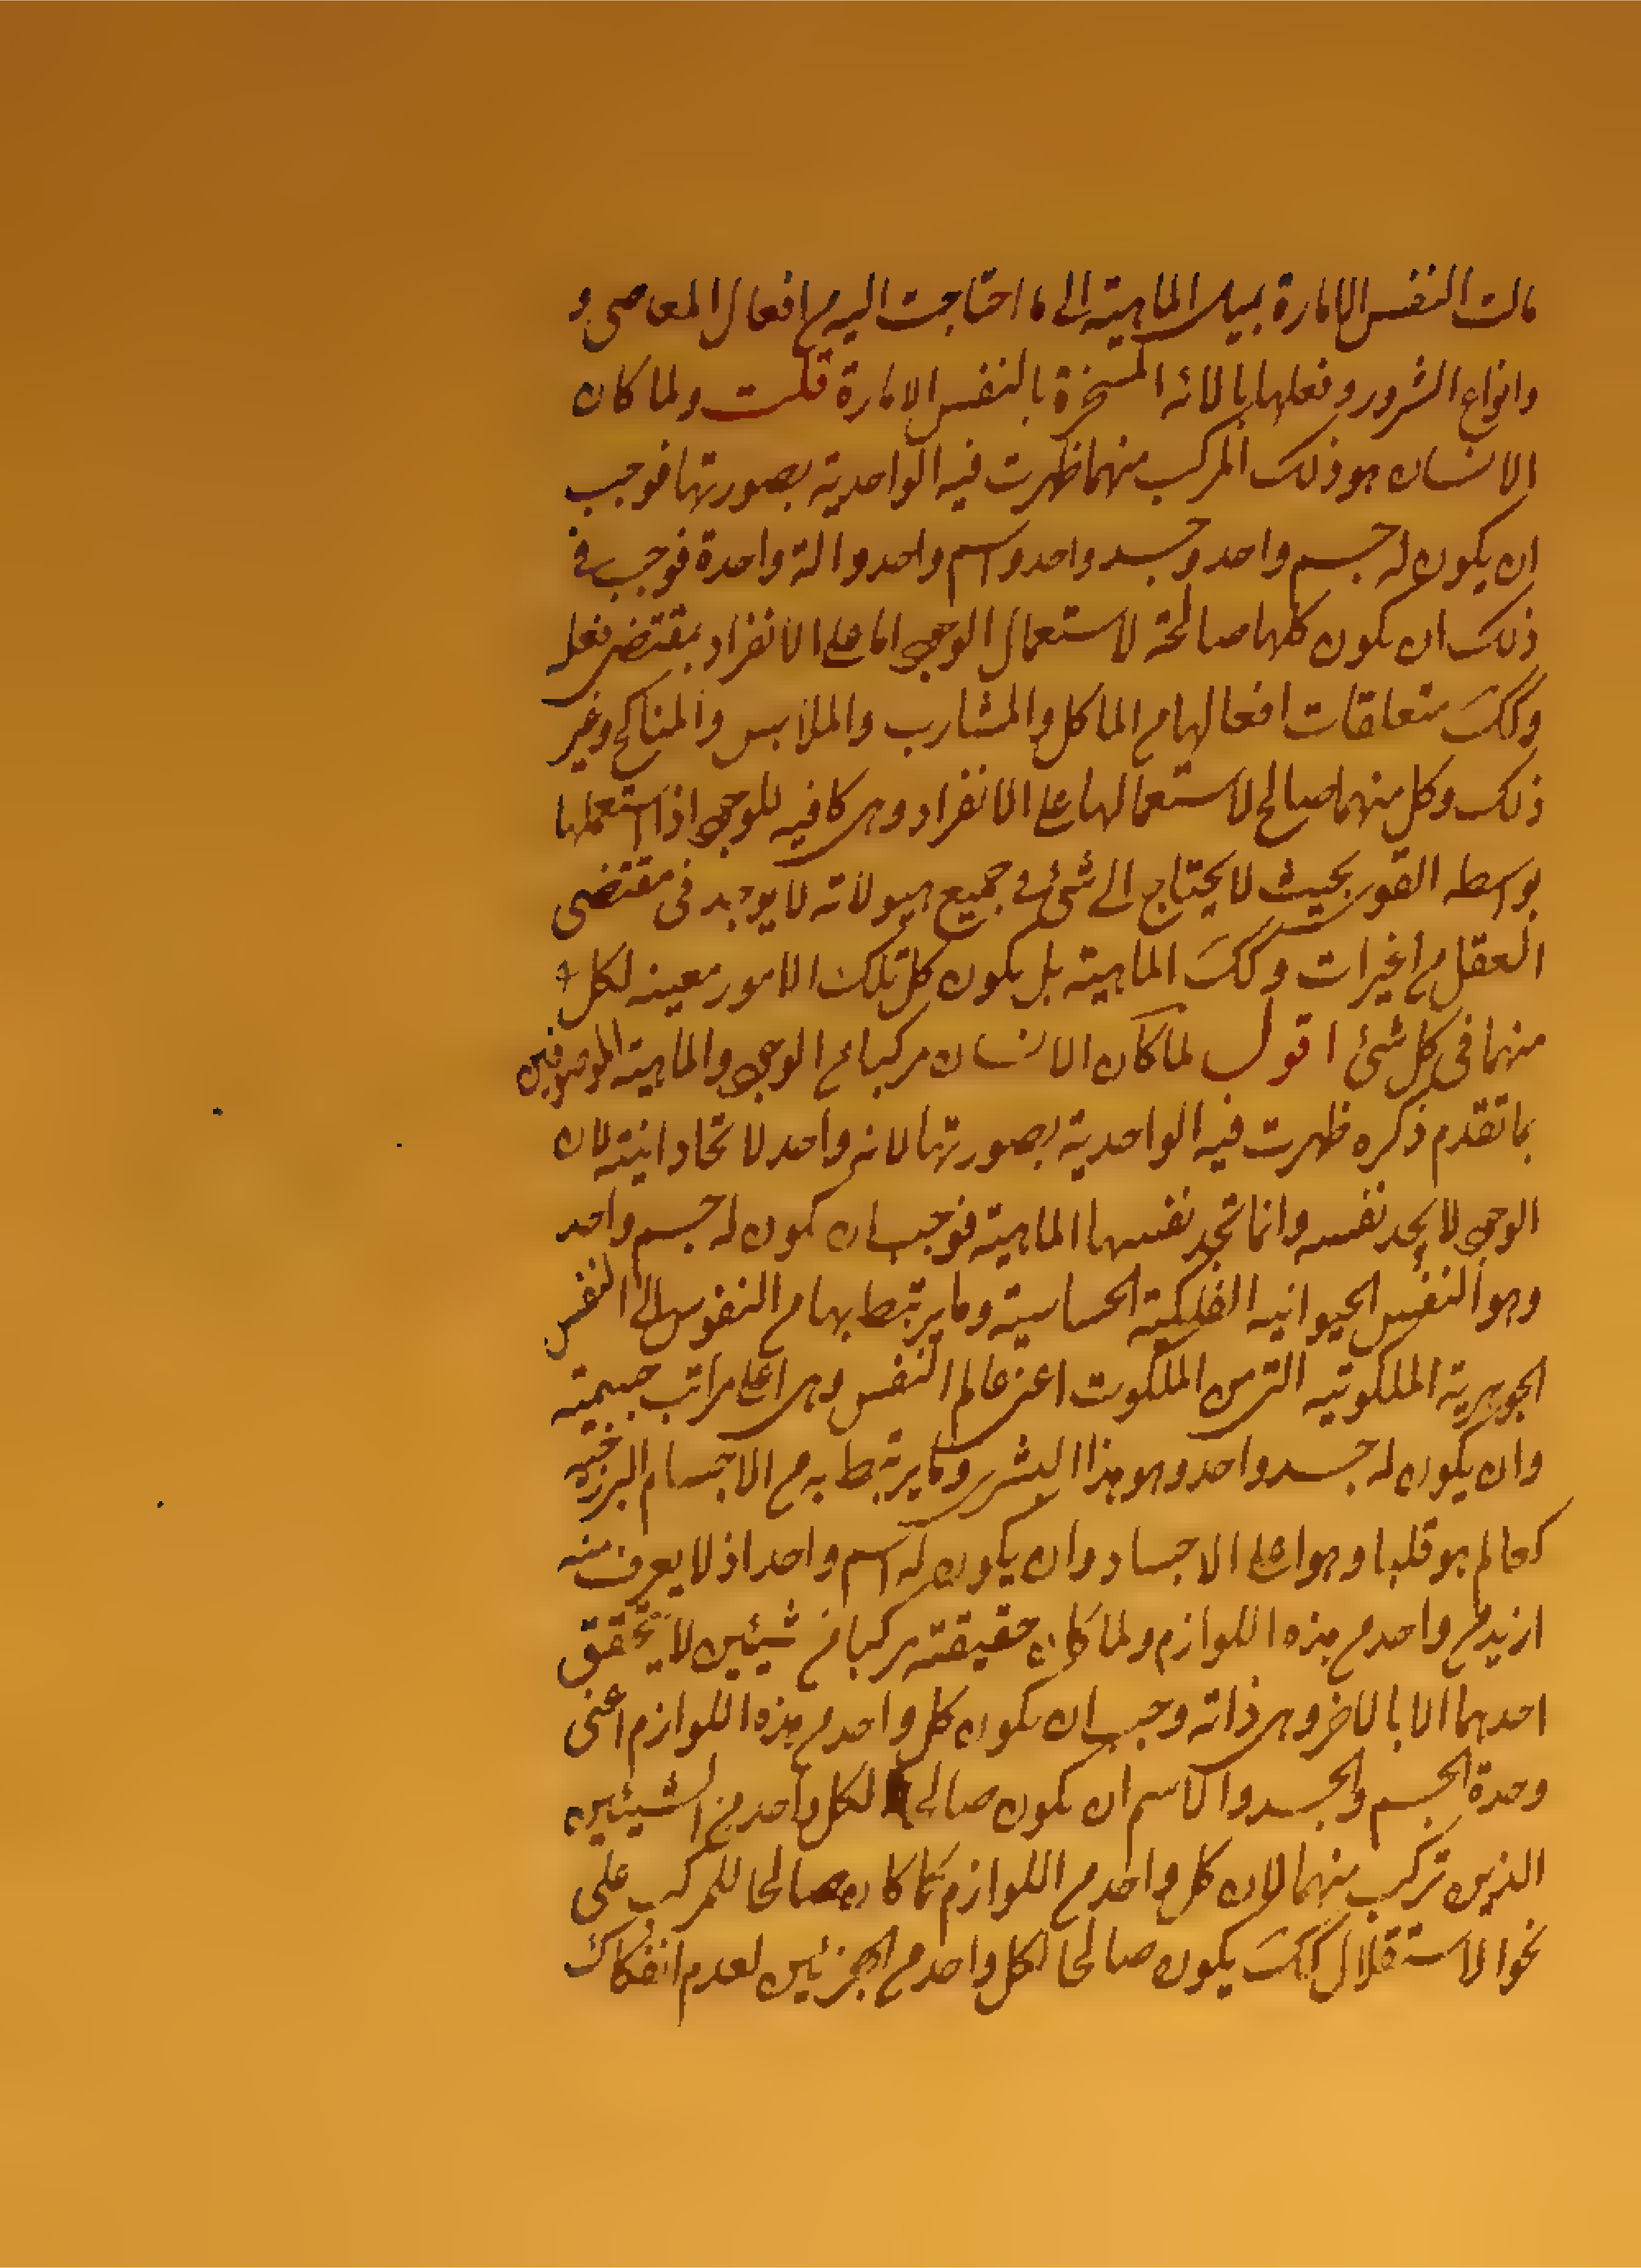 مالت النفس الامارة بميل الماهية الى ما احتاجت اليه من افعال المعاصى و
وانواع الشرور وفعلها بالاته المسخرة بالنفس الامارة قلت ولما كان
الانسان هو ذلك المركب منهما ظهرت فيه الواحدية بصورتها فوجب
ان يكون له جسم واحد وجسد واحد واسم واحد والة واحدة فوجب فى
ذلك ان يكون كلها صالحة لاستعمال الوجود اما على الانفراد بمقتضى فعله
وكك متعلقات افعالها من الماكل والمشارب والملابس والمناكح وغير
ذلك وكل منهما صالح لاستعمالها على الانفراد وهى كافيه للوجود اذا استعملها
بواسطه القوى بحيث لا يحتاج الى شئ فى جميع ميولاته لا يوجد فى مقتضى
العقل من الخيرات وكك الماهية بل يكون كل تلك الامور معينه لكل
منهما فى كل شئ اقول لما كان الانسان مركبا من الوجود والماهية الموصوفين
بما تقدم ذكره ظهرت فيه الواحدية بصورتها لانه واحد لاتحاد انيته لان
الوجود لا يجد نفسه وانما تجد نفسها الماهية فوجب ان يكون له جسم واحد
وهو النفس الحيوانيه الفلكية الحساسية وما يرتبط بها من النفوس الى النفس
الجوهرية الملكوتيه التى من الملكوت اعنى عالم النفس وهى اعلى مراتب جسميته
وان يكون له جسد واحد وهو هذا البشرى وما يرتبط به من الاجسام البرزخيه
كعالم هو قليا وهو اعلى الاجساد وان يكون له اسم واحد اذ لا يعرف منه
ازيد من واحد من هذه اللوازم ولما كان حقيقته مركبا من شيئين لا يتحقق
احدهما الا بالاخر وهى ذاته وجب ان يكون كل واحد من هذه اللوازم اعنى
وحدة الجسم والجسد والاسم ان يكون صالحا لكل واحد من الشيئين
الذين تركب منهما لان كل واحد من اللوازم كما كان صالحا للمركب على
نحو الاستقلال كك يكون صالحا لكل واحد من الجزئين لعدم انفكاك